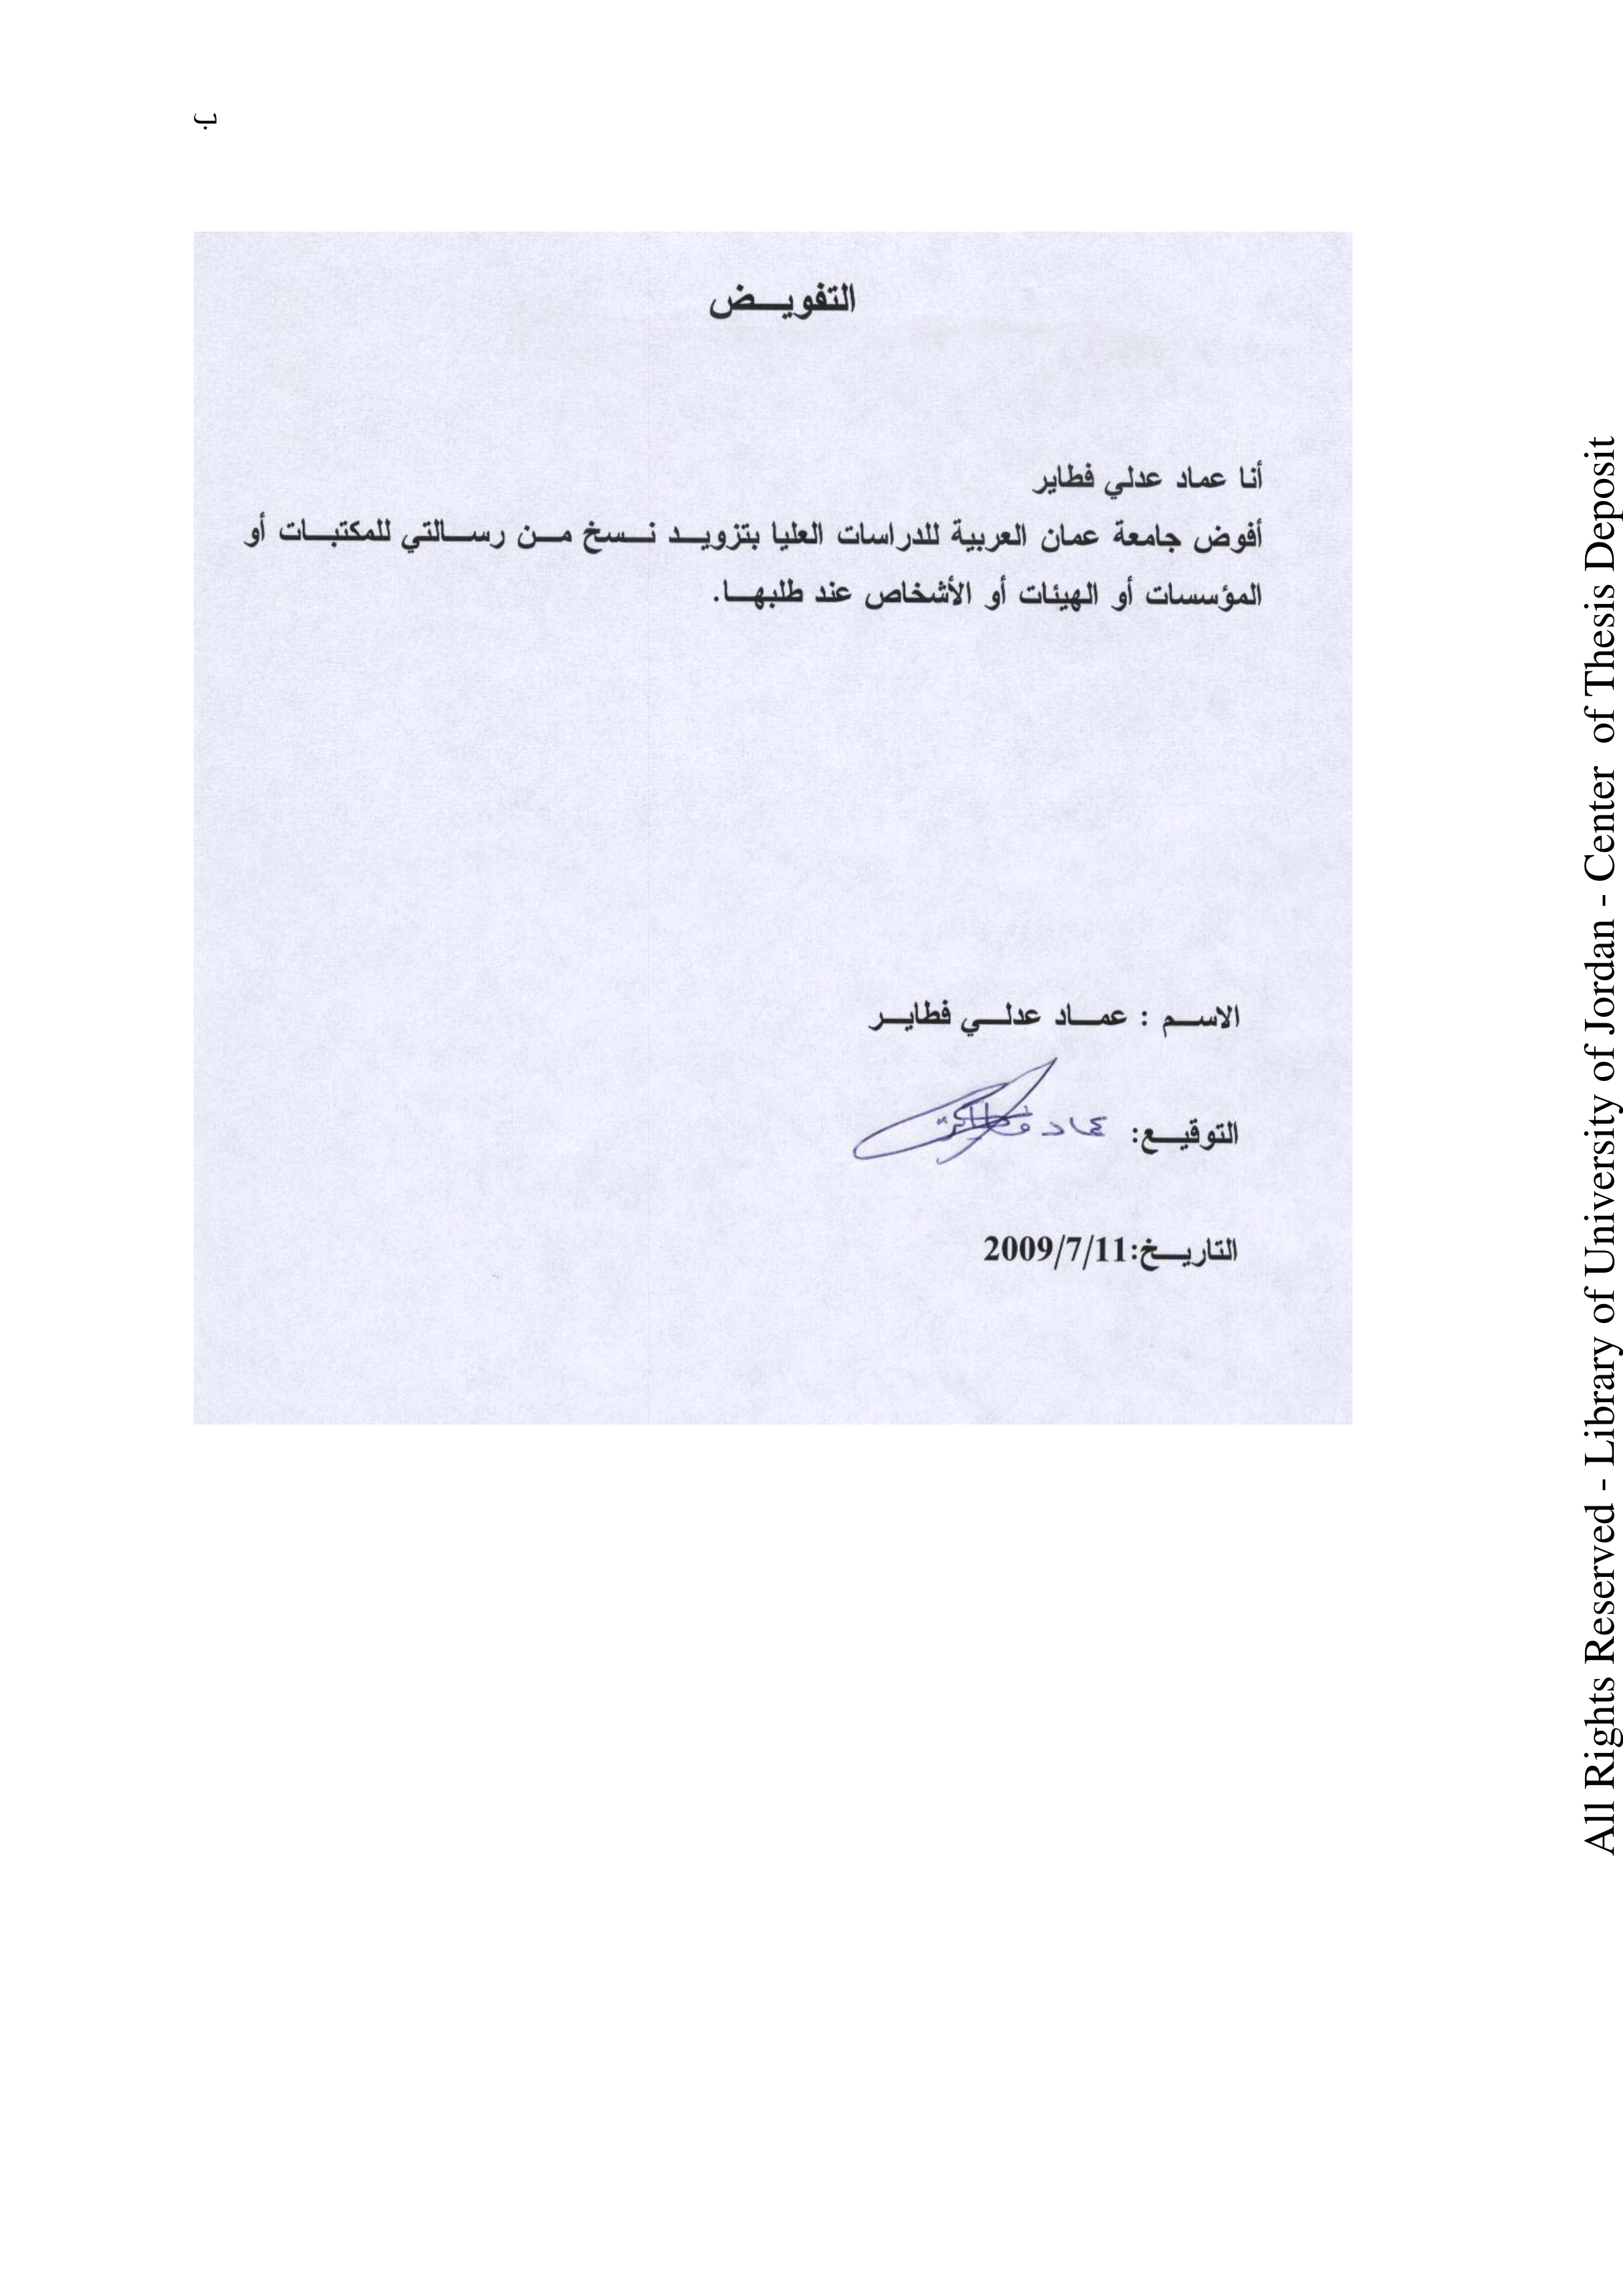 ب
التفويض
أنا عماد عدلي فطاير
أفوض جامعة عمان العربية للدراسات العليا بتزويد نسخ من رسالتي للمكتبات أو
المؤسسات أو الهيئات أو الأشخاص عند طلبها.
الاسم : عماد عدلي فطاير
التوقيع: عماد فطاير
التاريخ:2009/7/11
All Rights Reserved - Library of University of Jordan - Center of Thesis Deposit